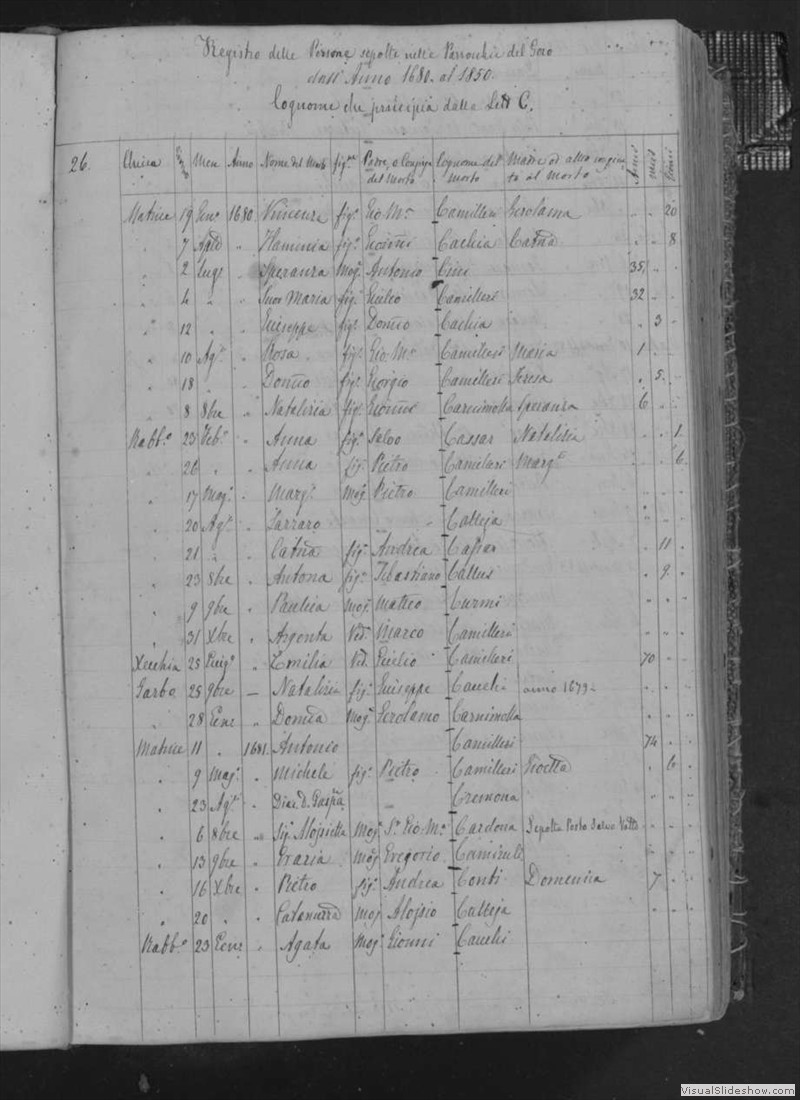 Registro delle Persone sepolte nelle Parrochie del Gozo
dall' Anno 1680. al 1850.
Cognome che principia dalla Lett C.
26. Chiesa Mese Anno Nome del Morto fig. Padre, o Conjuge del Morto Cognome del morto Madre od altro congiunto al morto Anni mesi Giorni
Matrice 19 Genº 1680. Vincenza figª Gio Mª Camilleri Gerolama " " 20
" 7 " Flaminia figª Giomñi Cachia Catñã " " 8
" 2 Lugº " Speranza Mogª Antonio Cini 35 " "
" 4 " " Suor Maria figª Giulio Camilleri 32 " "
" 12 " " Giuseppe figº Domco Cachia " 3 "
" 10 Agº " Rosa figª Gio. Mª Camilleri Maria 1 " "
" 18 " " Domco figº Giorgio Camilleri Teresa " 5 "
" 8 8bre " Natalizia figª Giomñi Speranza 6 " "
Rabbº 23 Febº " Anna figª Salvo Cassar Natalizia " " 1
" 26 " " Anna figª Pietro Camilleri Margª " " 6
" 17 Magº " Margª Mogª Pietro Camilleri
" 20 Agº " Lazzaro " Calleja " " "
" 21 " " Catñã figª Andrea Cassar " 11 "
" 23 8bre " Antona figª Sebastiano Callus " 9 "
" 9 9bre " Paulica Mogª Matteo Curmi " " "
" 31 Xbre " Argenta Ved. Marco Camilleri " " "
Xeuchia 25 " Emilia Ved. Giulio Camilleri 70 " "
Garbo 25 9bre — Natalizia figª Giuseppe Cauchi anno 1679 " " "
" 28 Genº " Domca Mogª Gerolamo " " "
Matrice 11 " 1681. Antonio Camilleri 74 " "
" 9 Magº " Michele figº Pietro Camilleri " 6 "
" 23 Agº " Diac. D. Gaspª Cremona " "
" 6 8bre " Sigª Aloisietta Mogª Sr Gio. Mª Cardona Sepolta Porto Salvo Vallta " " "
" 13 9bre " Grazia Mogª Gregorio Camilleri " " "
" 16 Xbre " Pietro figº Andrea Conti Domenica " 7 "
" 20 " " Mogª Aloisio Calleja " " "
Rabbº 23 Genº " Agata Mogª Gionni Cauchi
VisualSlideshow.com